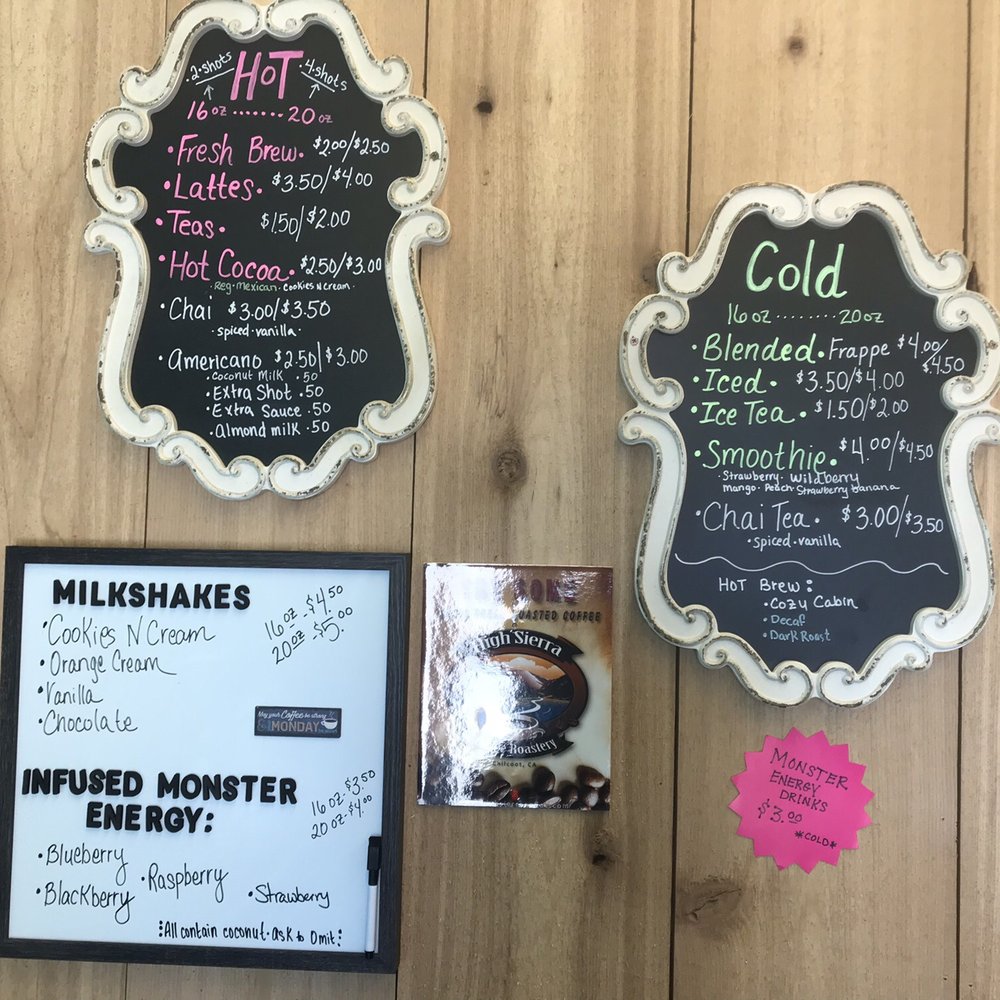 2-shots HOT 4-shots
16 oz ....... 20 oz
• Fresh Brew. $2.00/$2.50
• Lattes. $3.50/$4.00
• Teas. $1.50/$2.00
• Hot Cocoa. $2.50/$3.00
Reg • mexican • Cookies N Cream •
• Chai $3.00/$3.50
• spiced • vanilla •
• Americano $2.50/$3.00
• Coconut Milk • 50
• Extra Shot • 50
• Extra Sauce • 50
• Almond milk • 50
Cold
16 oz ........ 20 oz
• Blended. Frappe $4.00/$4.50
• Iced. $3.50/$4.00
• Ice Tea. $1.50/$2.00
• Smoothie. $4.00/$4.50
• Strawberry • Wildberry
mango • Peach • Strawberry banana
• Chai Tea. $3.00/$3.50
• spiced • vanilla
HOT Brew:
• Cozy Cabin
• Decaf
• Dark Roast
MILKSHAKES
16 oz - $4.50
20 oz - $5.00
• Cookies N Cream
• Orange Cream
• Vanilla
• Chocolate
May your Coffee be strong
MONDAY
INFUSED MONSTER
ENERGY:
16 oz - $3.50
20 oz - $4.00
• Blueberry
• Raspberry
• Blackberry
• Strawberry
All contain coconut • ask to omit
ROASTED COFFEE
High Sierra
Roastery
Chilcoot, CA
MONSTER
ENERGY
DRINKS
$3.00
*COLD*